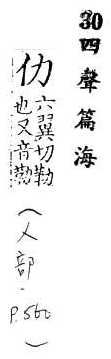 30四聲篇海
仂六翼切勒
也又音勒
（人部.
P.560）